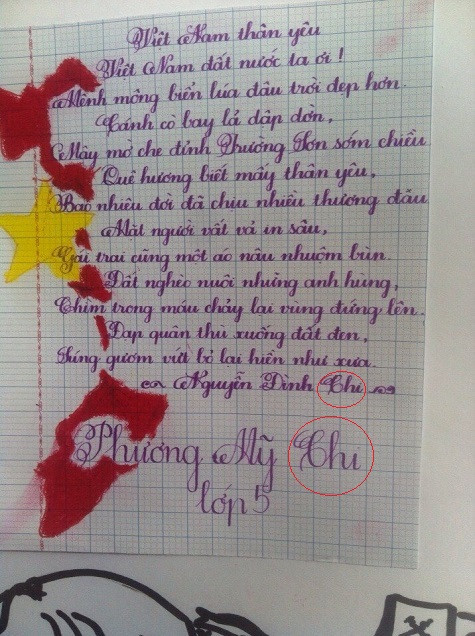 Việt Nam thân yêu
Việt Nam đất nước ta ơi !
Mênh mông biển lúa đâu trời đẹp hơn.
Cánh cò bay lả dập dờn,
Mây mờ che đỉnh Trường Sơn sớm chiều
Quê hương biết mấy thân yêu,
Bao nhiêu đời đã chịu nhiều thương đau
Mặt người vất vả in sâu,
Gái trai cũng một áo nâu nhuộm bùn.
Đất nghèo nuôi những anh hùng,
Chìm trong máu chảy lại vùng đứng lên.
Đạp quân thù xuống đất đen,
Súng gươm vứt bỏ lại hiền như xưa.
Nguyễn Đình Chi
Phương Mỹ Chi
lớp 5